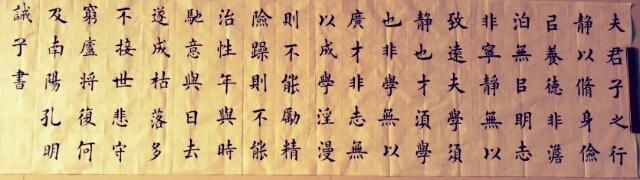 夫君子之行
静以脩身儉
㠯養德非澹
泊無㠯明志
非寧靜無以
致遠夫學須
静也才須學
也非學無以
廣才非志無
以成學淫漫
則不能勵精
險躁則不能
治性年與時
馳意與日去
遂成枯落多
不接世悲守
窮廬將復何
及南陽孔明
誡子書